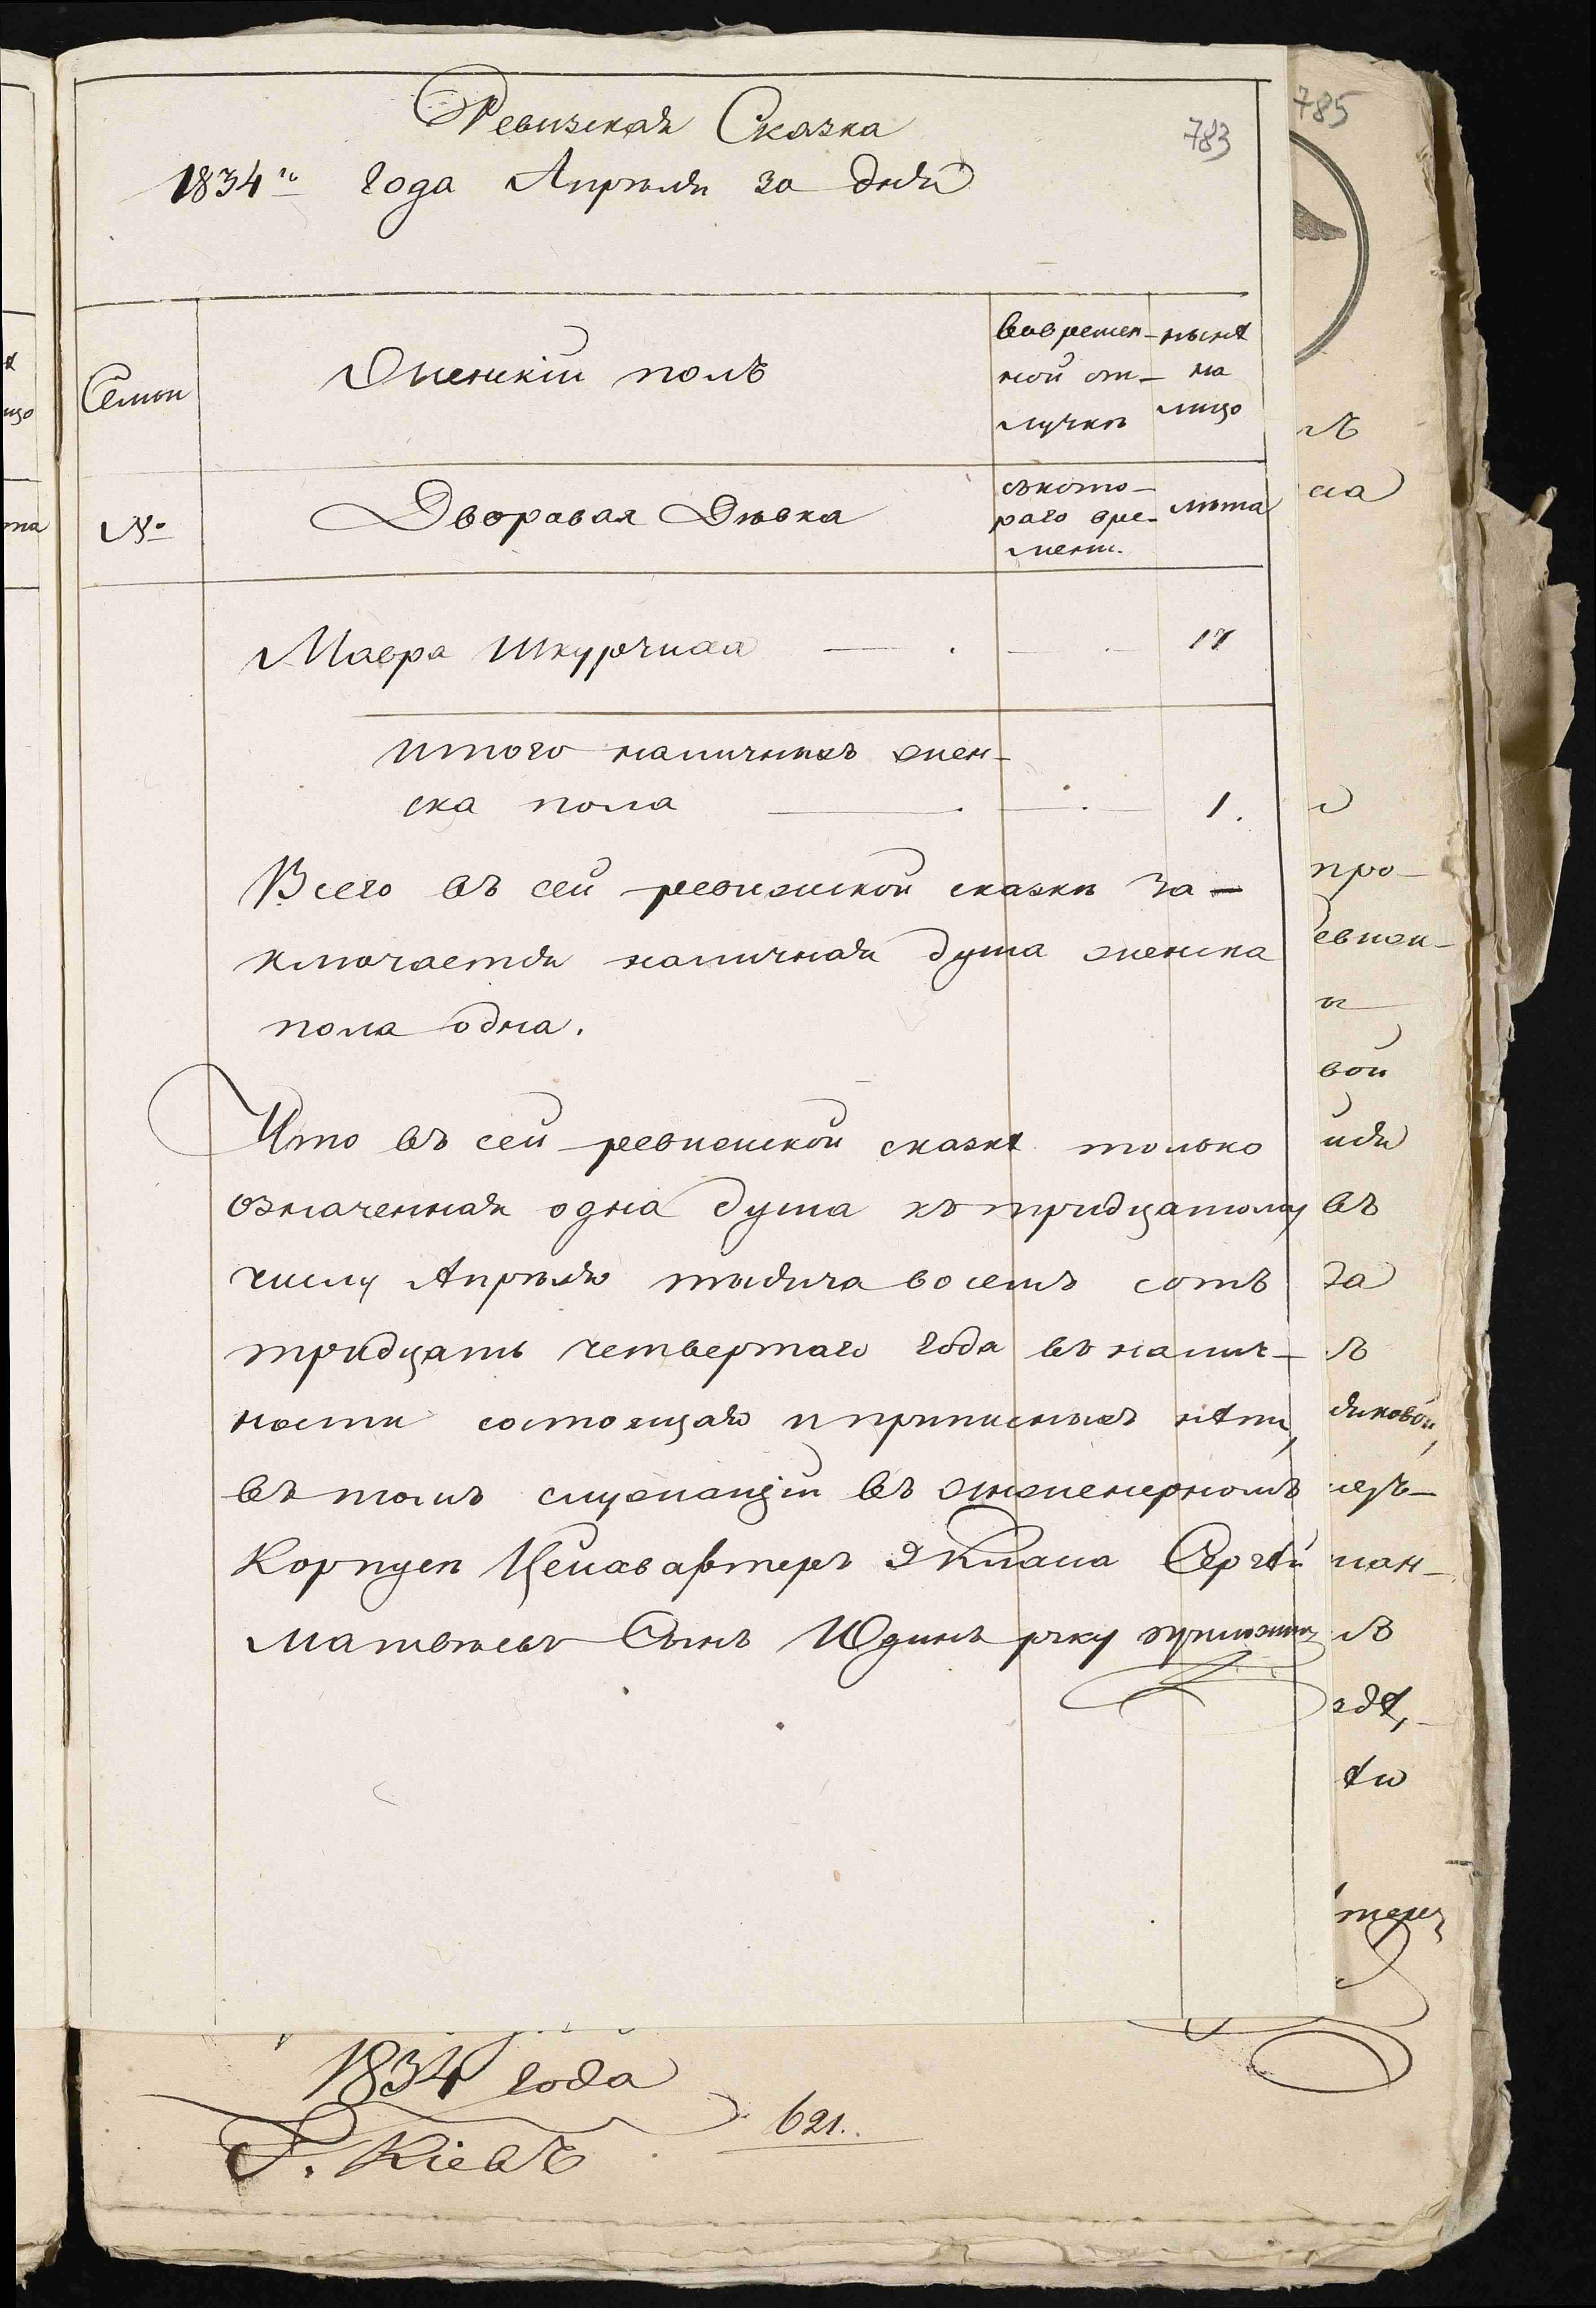 Ревизская Сказка
783
785
1834го года Апреля 30 дня
Семьи
Женскій полъ
вовремен-
ной от-
лучкѣ
нынѣ
на
лицо
№
Дворовая Дѣвка
съкото-
раго вре-
мени.
лѣта
Мавра Шкурчиха — . — . 17
итого наличныхъ жен-
ска пола — . — . 1.
Всего въ сей ревижской сказкѣ за-
ключается наличная душа женска
пола одна.
Что въ сей ревижской сказкѣ только
означенная одна душа къ тридцатому
числу Апрѣля тысяча восемъ сотъ
тридцать четвертаго года въ налич-
ности состоящая и приписныхъ нѣтъ,
въ томъ служащій въ Инженерномъ
Корпусѣ Цейхвахтеръ Сергѣй
Матвѣевъ Сынъ Юдинъ руку приложилъ
лъ
на
про-
ревиж-
вой
въ
за
лъ
1834 года
Г. Кіевъ
621.